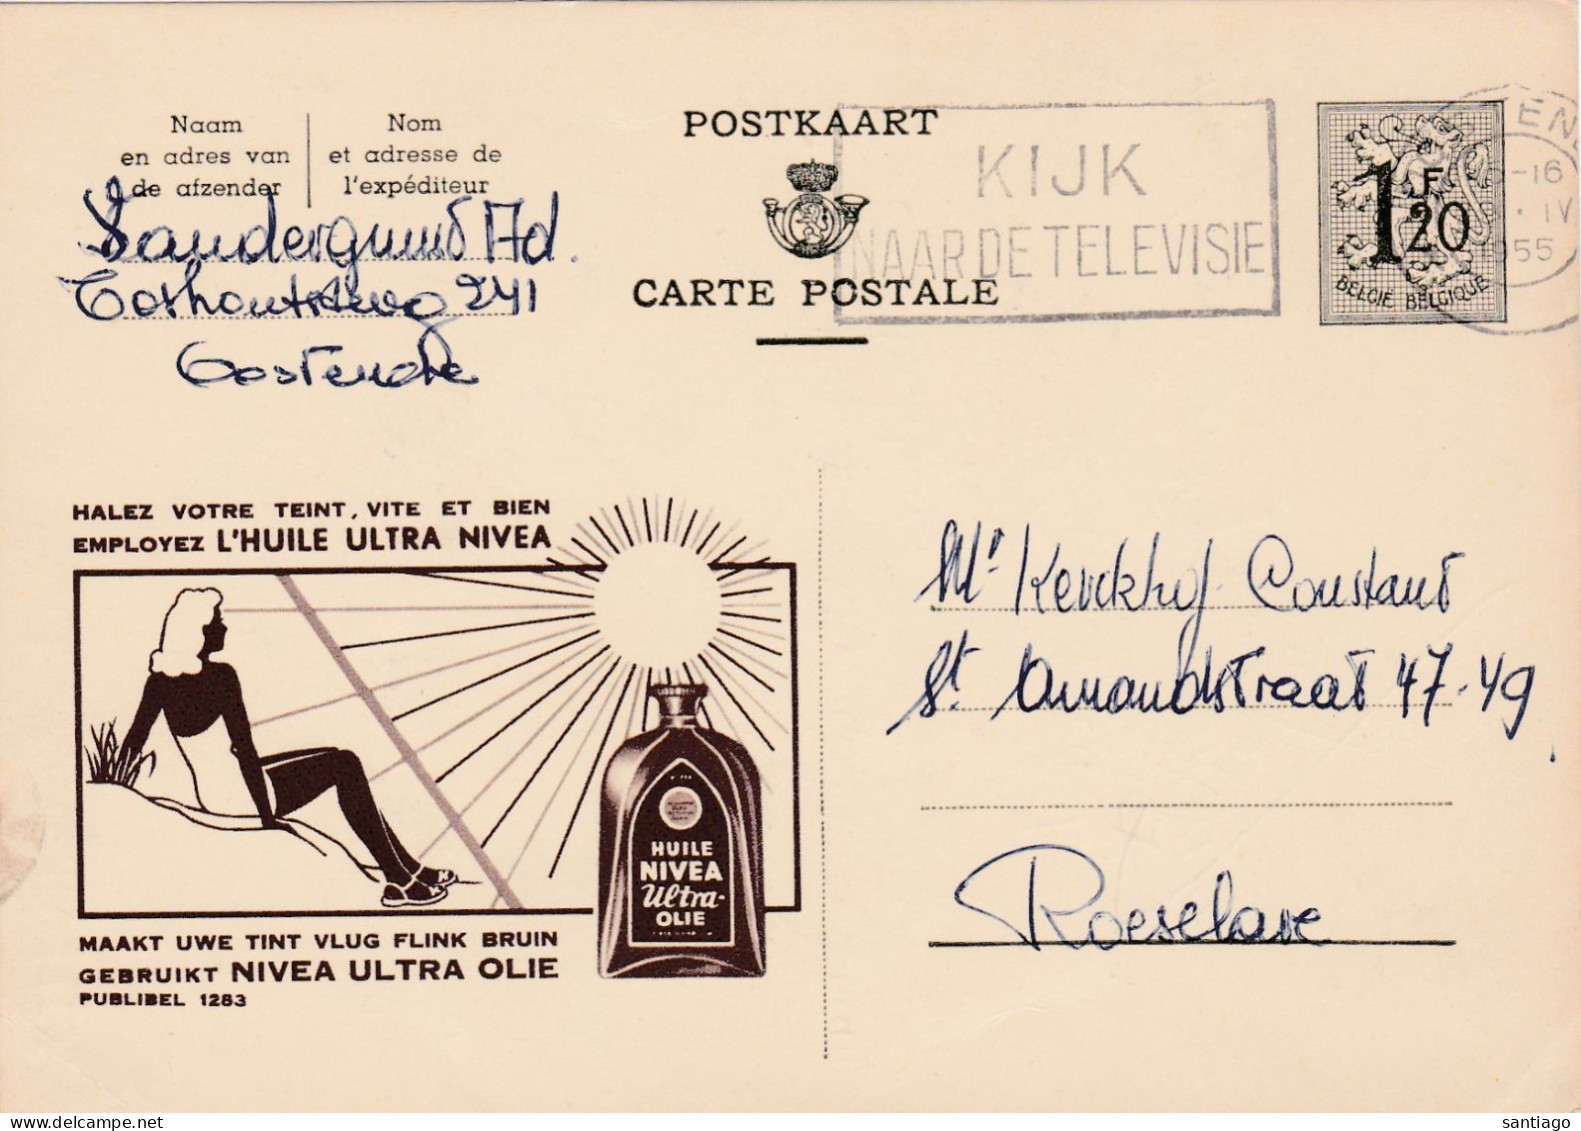 Naam
en adres van
de afzender
Nom
et adresse de
l'expéditeur
POSTKAART
CARTE POSTALE
KIJK
NAAR DE TELEVISIE
1F20
BELGIE BELGIQUE
-16
IV
1955
241
Oostende
HALEZ VOTRE TEINT, VITE ET BIEN
EMPLOYEZ L'HUILE ULTRA NIVEA
HUILE
NIVEA
Ultra-
OLIE
MAAKT UWE TINT VLUG FLINK BRUIN
GEBRUIKT NIVEA ULTRA OLIE
PUBLIBEL 1283
Mr Kerckhof Constant
St Amandstraat 47-49
Roeselare
santiago